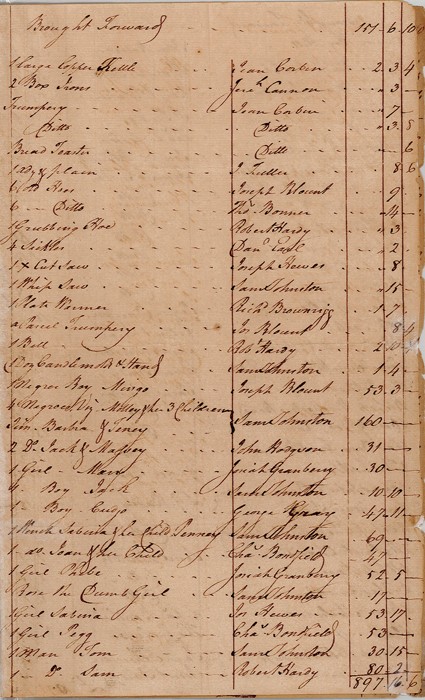 Brought Forward 151 6 10
1 Large Copper Kettle Jean Corbin 2 3 4
2 Box Irons Jerh Cannon " 3 —
Trumpery Jean Corbin " 7 —
Ditto Ditto " 3 8
Bread Toaster Ditto 6
1 adz & plain J Fuller 8 6
6 old Hoes Joseph Blount 9
6 Ditto Thos Bonner " 4 —
1 Grubbing Hoe Robert Hardy " 3
4 Sickles Danl Earl " 2 —
1 X Cut Saw Joseph Hewes " 8
1 Whip Saw Saml Johnston " 15 —
1 Plate Warmer Richd Brownrigg 1 7
a Parcel Trumpery Jos Blount 8 4
1 Bell Robt Hardy 2
1 Box Candlem & Hand Saml Johnston 1 4
1 Negroe Boy Mingo Joseph Blount 53 3
4 Negroes Viz Milley & her 3 Children
Jim Barbra & Teney Saml Johnston 160 —
2 Do Jack & Massey John Hodgson 31 —
1 Girl Mary Josiah Granbery 30 —
1 Boy Jack Saml Johnston 10 10
1 Boy Cugo George Gray 47 11
1 Wench Sabrina & her Child Penney Saml Johnston 69 —
1 do Joan & her Child Chas Bonfield 47 —
1 Girl Phebe Josiah Granbery 52 5 —
Rose the Dumb Girl Saml Johnston 17 —
1 Girl Sabina Jos Hewes 53 17
1 Girl Pegg Chas Bonfield 53 —
1 Man Tom Saml Johnston 30 15
1 Do Sam Robert Hardy 80 2
897 16 6